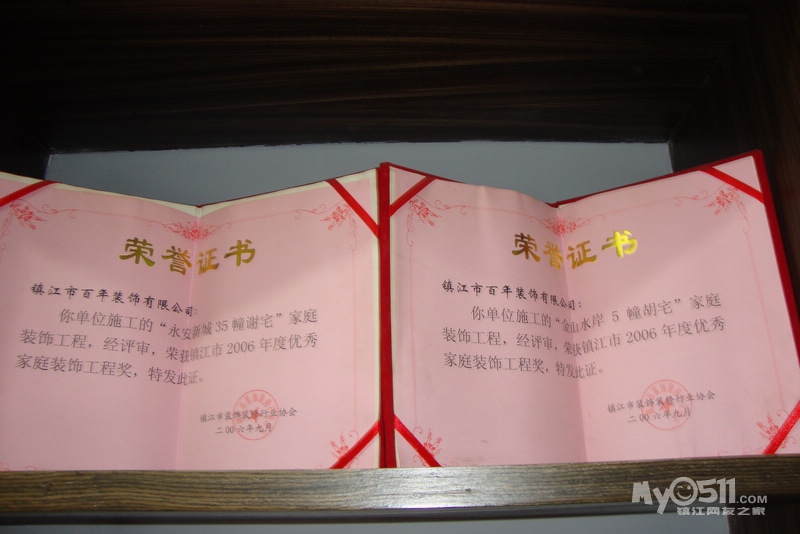 荣誉证书
镇江市百年装饰有限公司：
你单位施工的“永安新城35幢谢宅”家庭
装饰工程，经评审，荣获镇江市2006年度优秀
家庭装饰工程奖，特发此证。
镇江市装饰装修行业协会
二00六年九月
荣誉证书
镇江市百年装饰有限公司：
你单位施工的“金山水岸 5 幢胡宅”家庭
装饰工程，经评审，荣获镇江市2006年度优秀
家庭装饰工程奖，特发此证。
镇江市装饰装修行业协会
二00六年九月
My0511.COM
镇江网友之家